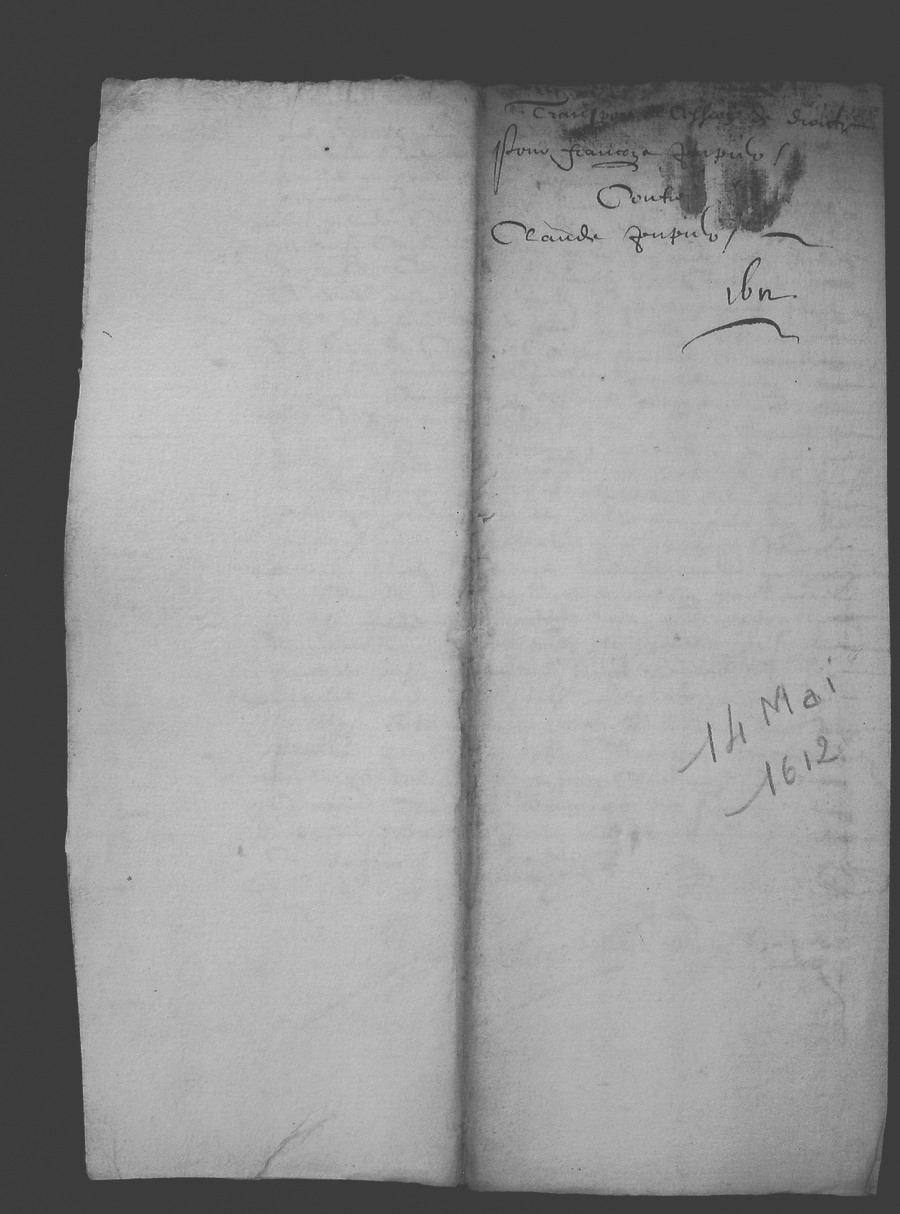 Transport de droictz
Pour Francoys
Contre
Claude
1612
14 Mai
1612